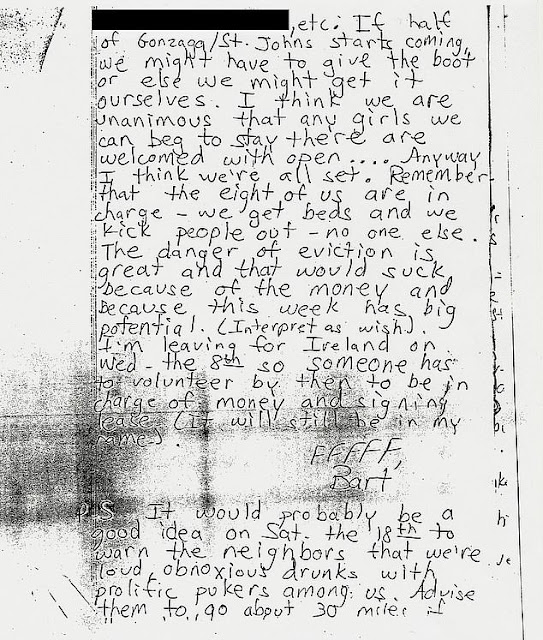 , etc. If half
of Gonzaga/St. Johns starts coming,
we might have to give the boot
or else we might get it
ourselves. I think we are
unanimous that any girls we
can beg to stay there are
welcomed with open.... Anyway
I think we're all set. Remember
that the eight of us are in
charge - we get beds and we
kick people out - no one else.
The danger of eviction is
great and that would suck
because of the money and
because this week has big
potential. (Interpret as wish).
I'm leaving for Ireland on
Wed. the 8th so someone has
to volunteer by then to be in
charge of money and signing
lease (It will still be in my
name).
FFFFF,
Bart
P.S. It would probably be a
good idea on Sat. the 18th to
warn the neighbors that we're
loud, obnoxious drunks with
prolific pukers among us. Advise
them to go about 30 miles